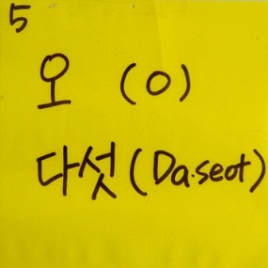 5
오 (O)
다섯 (Da.seot)